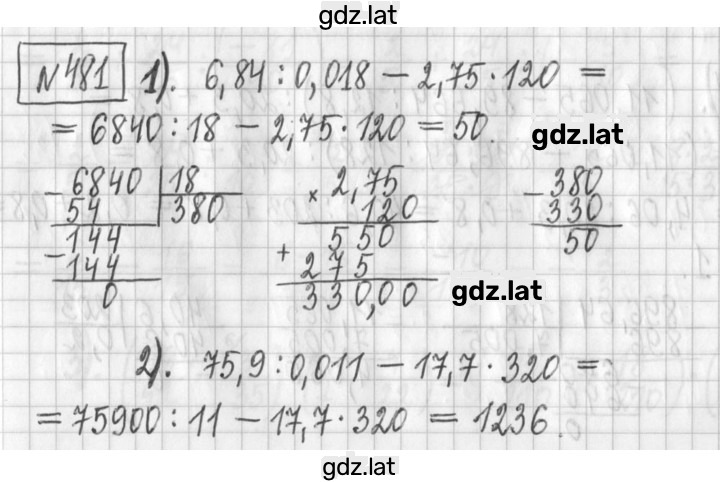 gdz.lat
N481 1). 6,84 : 0,018 – 2,75 · 120 =
= 6840 : 18 – 2,75 · 120 = 50.
gdz.lat
– 6840 | 18
54 | 380
– 144
144
0
× 2,75
120
+ 550
275
330,00
– 380
330
50
gdz.lat
2). 75,9 : 0,011 – 17,7 · 320 =
= 75900 : 11 – 17,7 · 320 = 1236.
gdz.lat